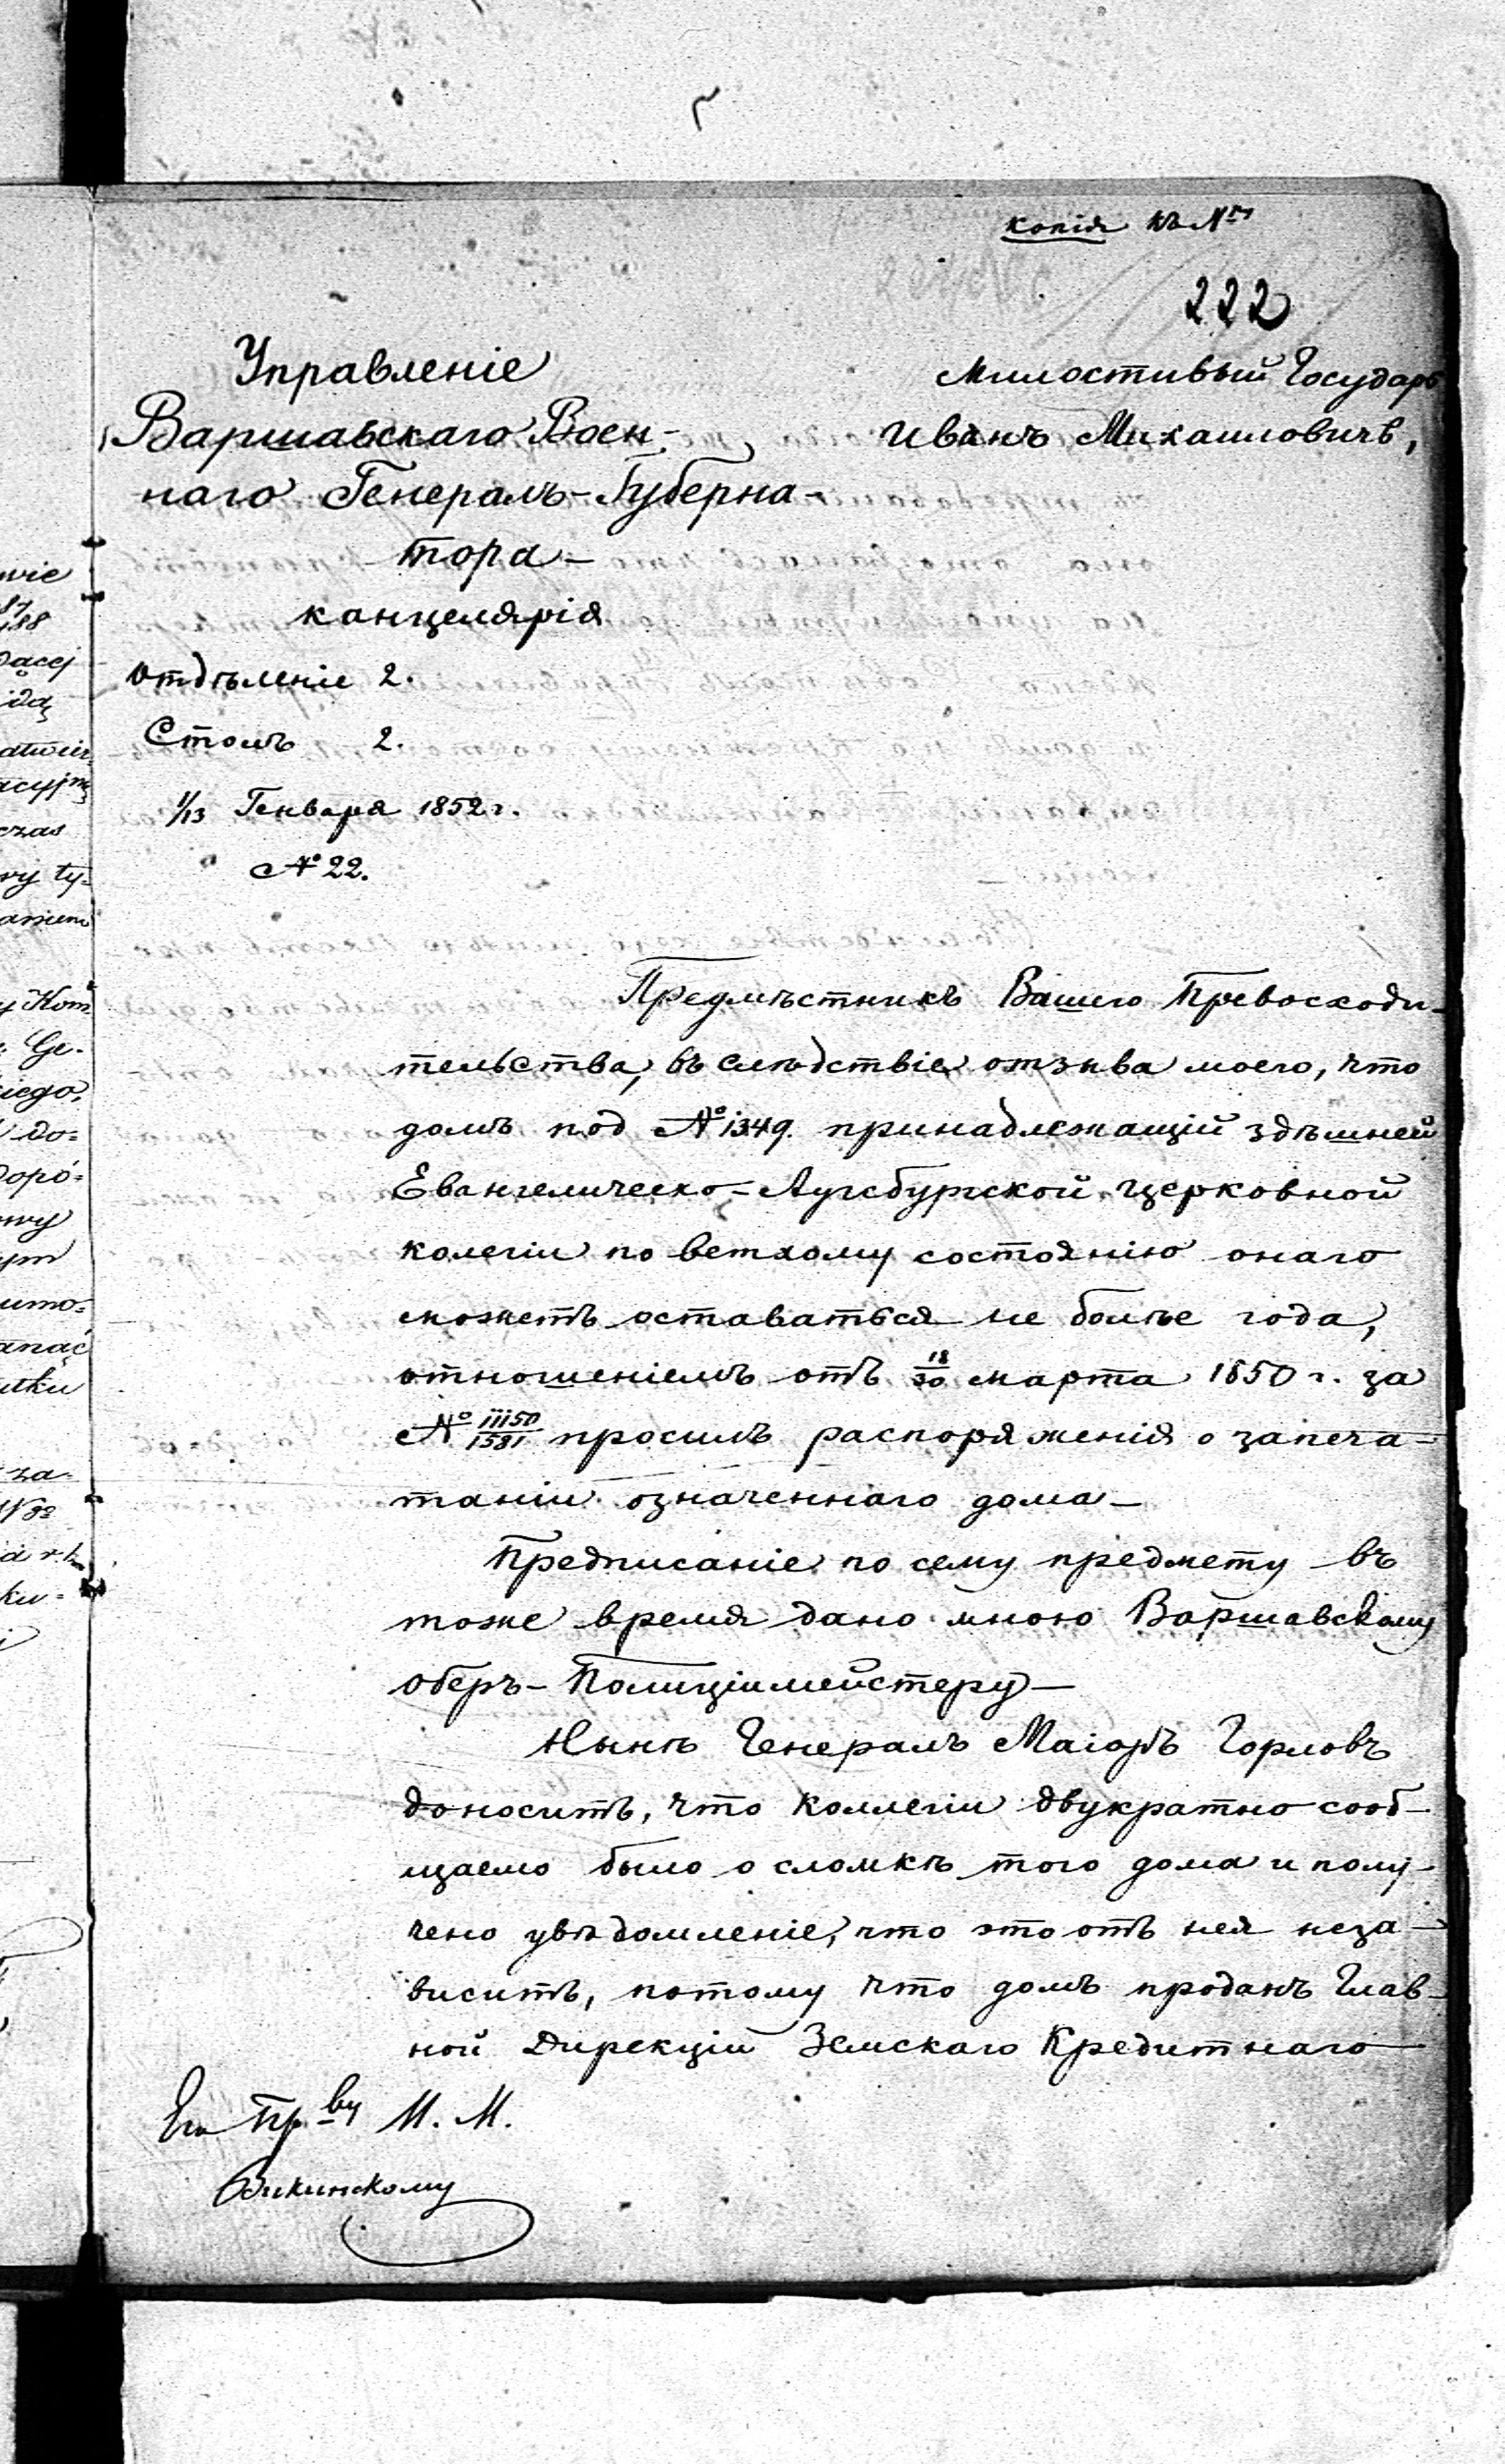 копія къ №
222
Управленіе
Варшавскаго Воен-
наго Генералъ-Губерна-
тора
канцелярія
Отдѣленіе 2.
Столъ 2.
1/13 Генваря 1852 г.
№ 22.
Милостивый Государь
Иванъ Михаиловичъ,
Предмѣстникъ Вашего Превосходи-
тельства, въ слѣдствіе отзыва моего, что
домъ под № 1349. принадлежащій здѣшней
Евангелическо-Аугсбургской церковной
колегіи по ветхому состоянію онаго
можетъ оставаться не болѣе года,
отношеніемъ отъ 18/30 марта 1850 г. за
№ 11150/1581 просилъ распоряженія о запеча-
таніи означеннаго дома—
Предписаніе по сему предмету въ
тоже время дано мною Варшавскому
Оберъ-Полиціймейстеру—
Нынѣ Генералъ Маіоръ Горловъ
доноситъ, что Коллегіи двукратно сооб-
щаемо было о сломкѣ того дома и полу-
чено увѣдомленіе, что это отъ нея неза-
виситъ, потому что домъ проданъ Глав-
ной Дирекціи Земскаго Кредитнаго
Его Пр.ву И. М.
wie
87
188
dącej
idą
czas
wy ty-
Kom
Ge-
iego,
do=
opó=
wy
ym
umo=
utku
za-
ku=